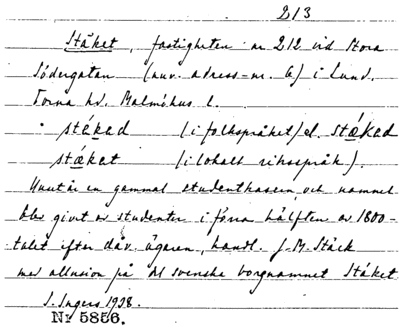 213
Stäket, fastigheten nr 212 vid Stora
Södergatan (nuv. adress-nr. 6) i Lund.
Torna hd. Malmöhus l.
stäkad (i folkspråket) el. stäkad
stäket (i lokalt riksspråk).
Huset är en gammal studentkasern, och namnet
blev givet av studenter i förra hälften av 1800-
talet efter dåv. ägaren, handl. J. M. Stäck
med allusion på det svenska borgnamnet Stäket
I. Ingers 1938.
Nr 5856.